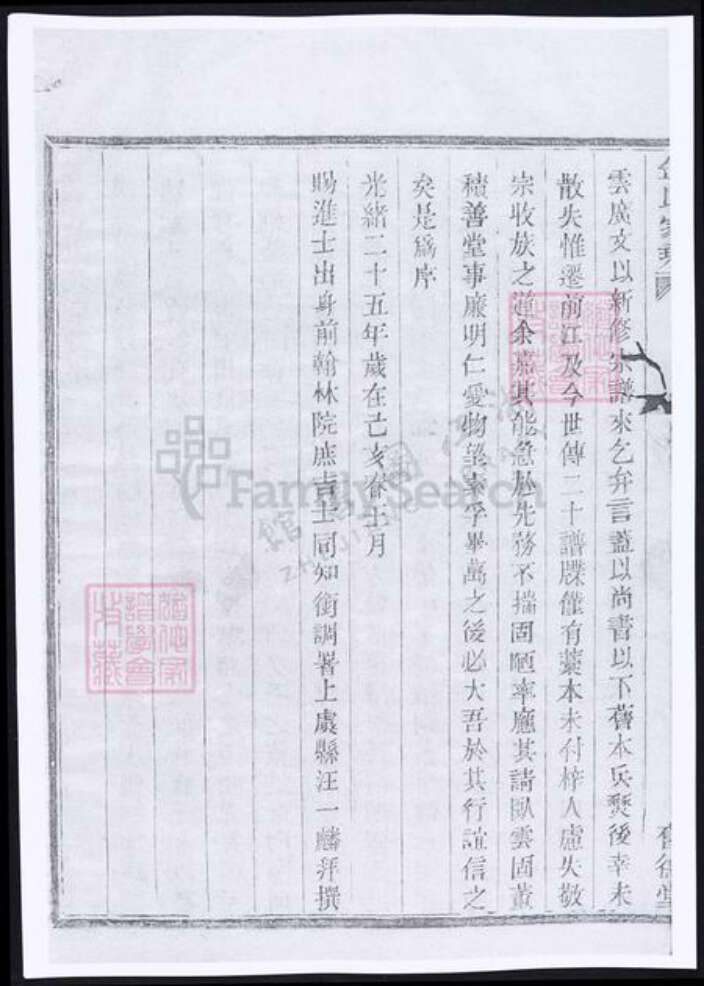 雲廣文以新修宗譜來乞弁言蓋以尚書以下舊本兵燹後幸未
散失惟遷前江及今世傳二十譜牒僅有藁本未付梓人慮失敬
宗收族之道余嘉其能急於先務不揣固陋率應其請臥雲固董
積善堂事廉明仁愛物望素孚畢萬之後必大吾於其行誼信之
矣是為序
光緒二十五年歲在己亥春王月
賜進士出身前翰林院庶吉士同知銜調署上虞縣汪一麟拜撰
FamilySearch